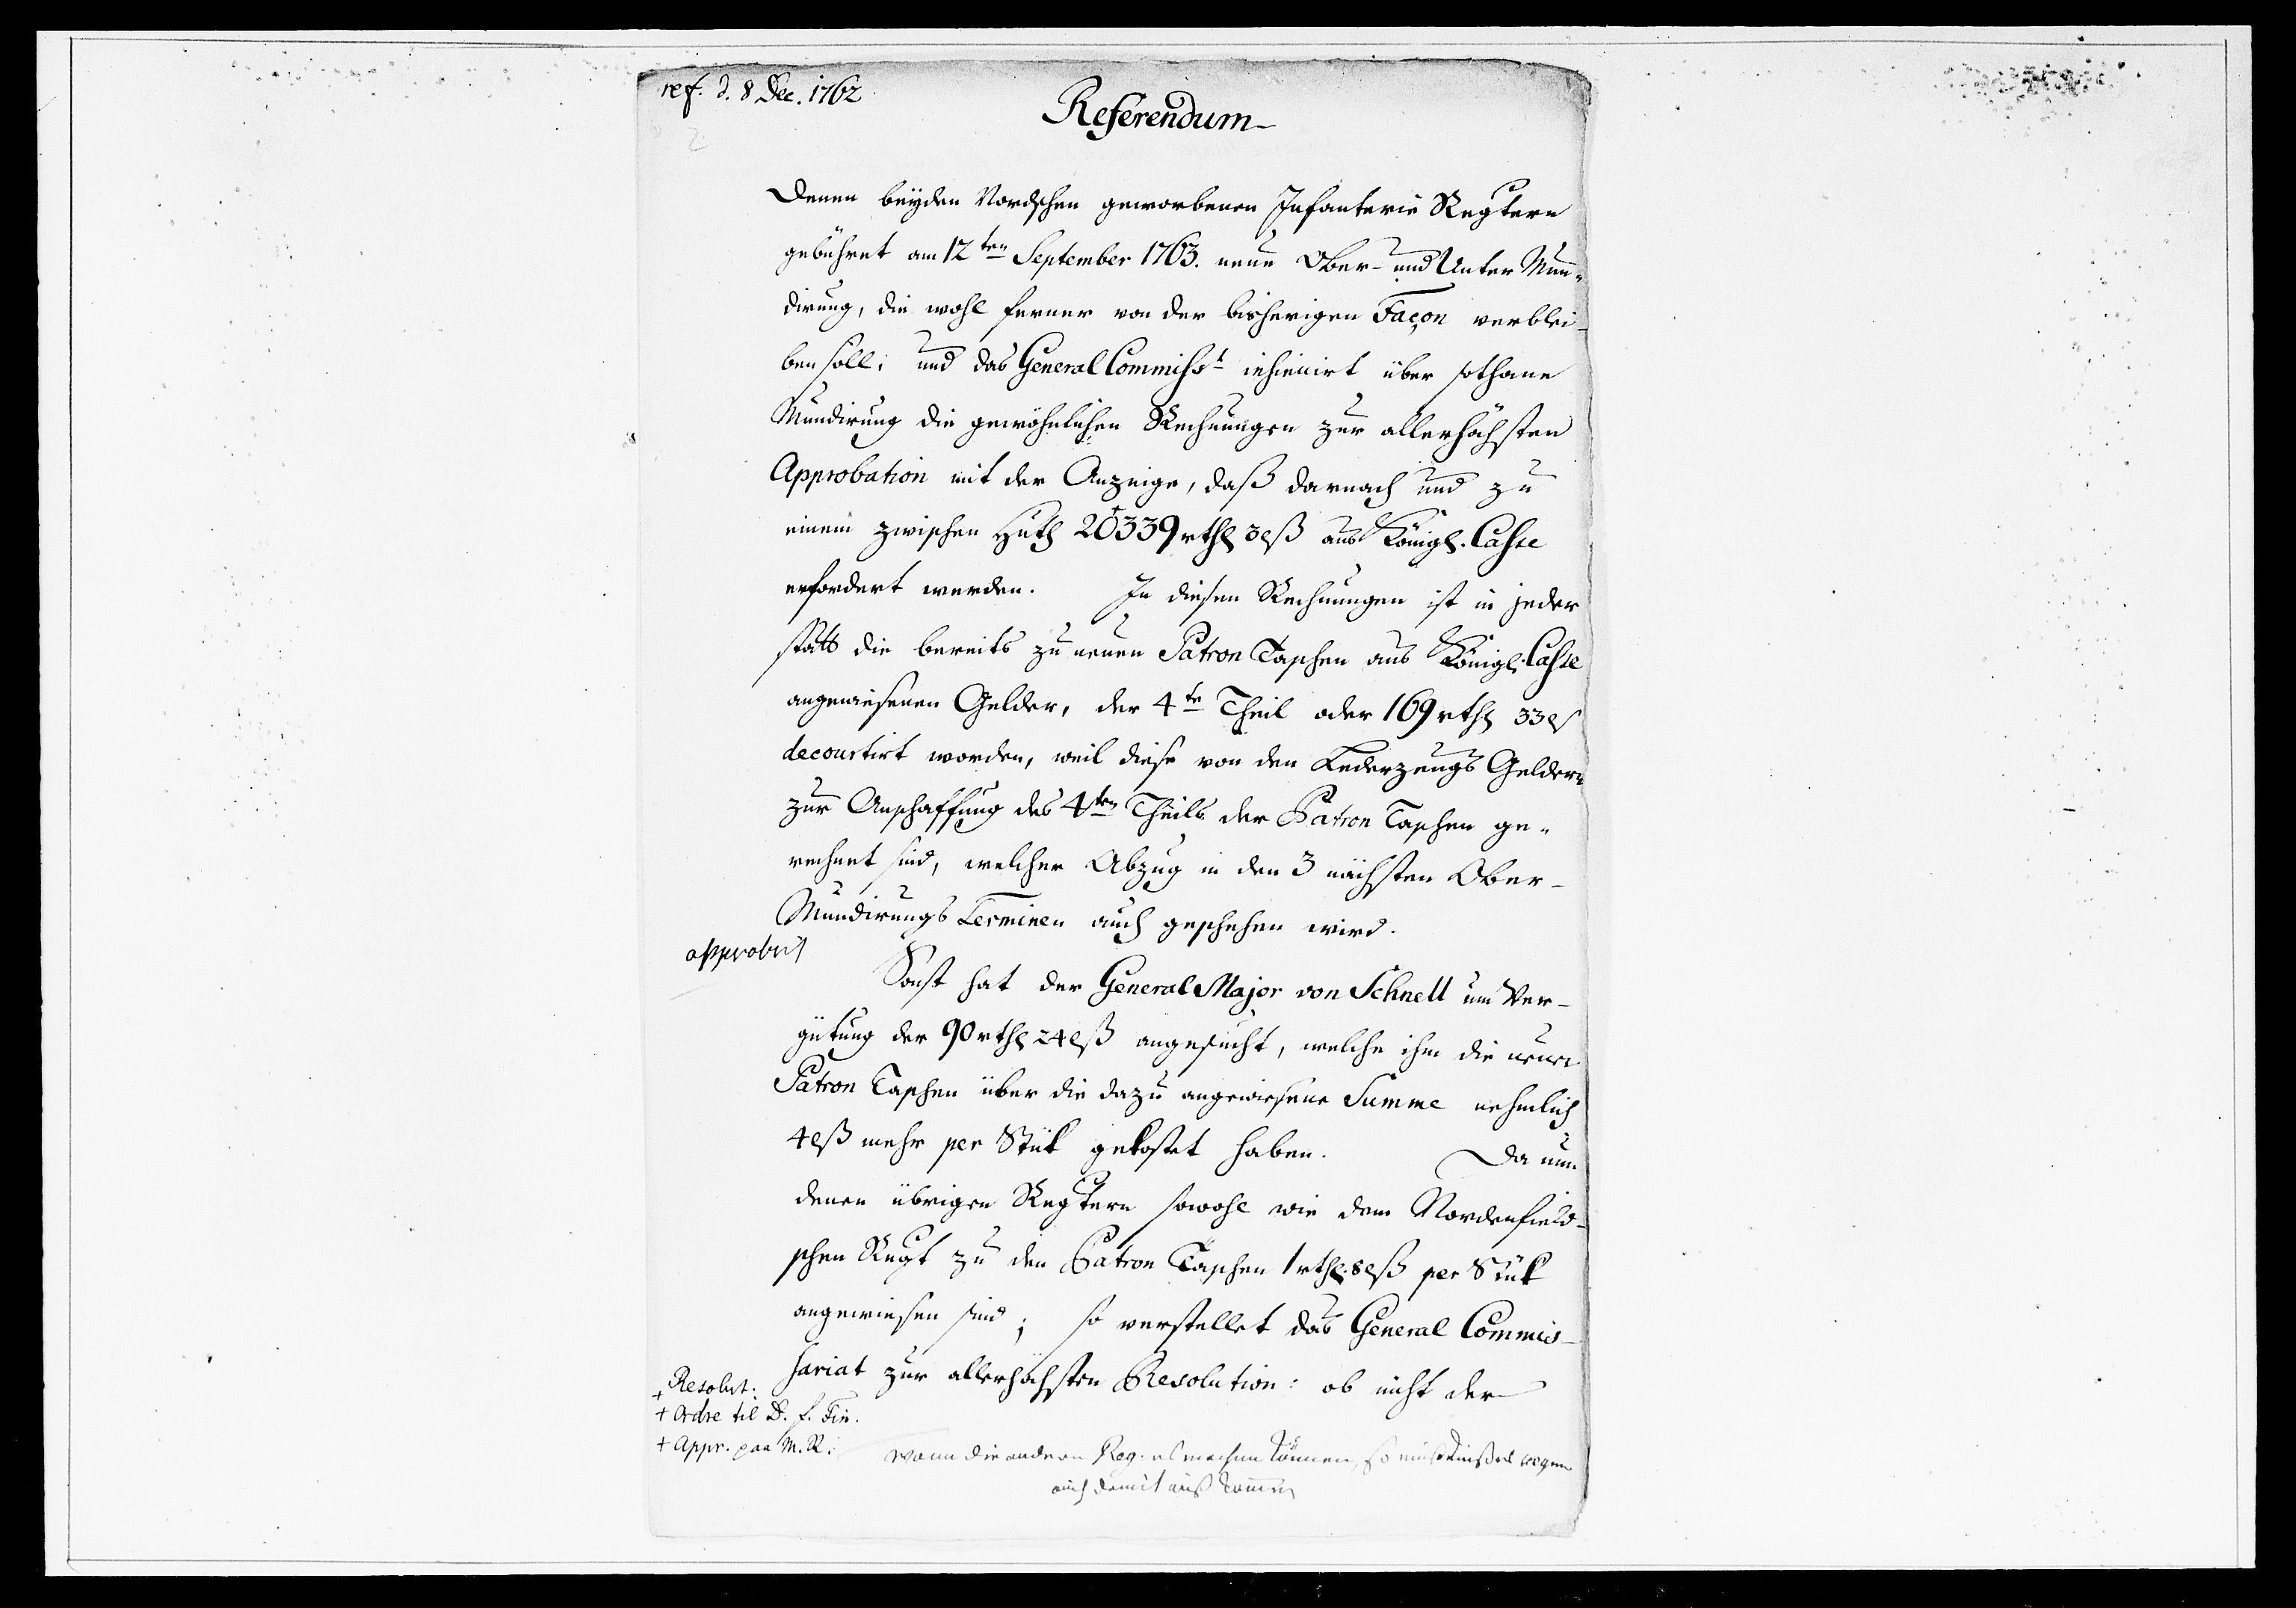 ref. d. 8 Dec. 1762
Referendum
Denen beyden Nordschen geworbenen Infanterie Regtern
gebühret am 12ten September 1763. neue Ober- und Unter Mun-
dirung, die wohl ferner von der bisherigen Façon verblei-
ben soll; und das General Commisst inhærirt über sothane
Mundirung die gewöhnlichen Rechnungen zur allerhöchsten
Approbation mit der Anzeige, daß darnach und zu
einem zwischen Huth 20339 rthl 3 lß aus Königl. Casse
erfordert werden. In diesen Rechnungen ist in jeder
statt die bereits zu neuen Patron Taschen aus Königl. Casse
angewiesenen Gelder, der 4te Theil oder 169 rthl 33 lß
decourtirt worden, weil diese von den Lederzeugs Geldern
zur Anschaffung des 4ten Theils der Patron Taschen ge-
rechnet sind, welcher Abzug in den 3 nächsten Ober-
Mundirungs Terminen auch geschehen wird.
approbirt
Sonst hat der General Major von Schnell um Ver-
gütung der 90 rthl 24 lß angesucht, welche ihm die neuen
Patron Taschen über die dazu angewiesene Summe nehmlich
4 lß mehr per Stük gekostet haben. Da nun
denen übrigen Regtern sowohl wie dem Nordenfield-
schen Regt zu den Patron Taschen 1 rthl. 8 lß per Stük
angewiesen sind; so verstellet das General Commis-
sariat zur allerhöchsten Resolution: ob nicht der
Resolut.
+ Ordre til D. f. Fin.
+ Appr. paa M. R.
Wann die andern Reg. es machen können, so muß dieses wegen
auch damit aus kommen